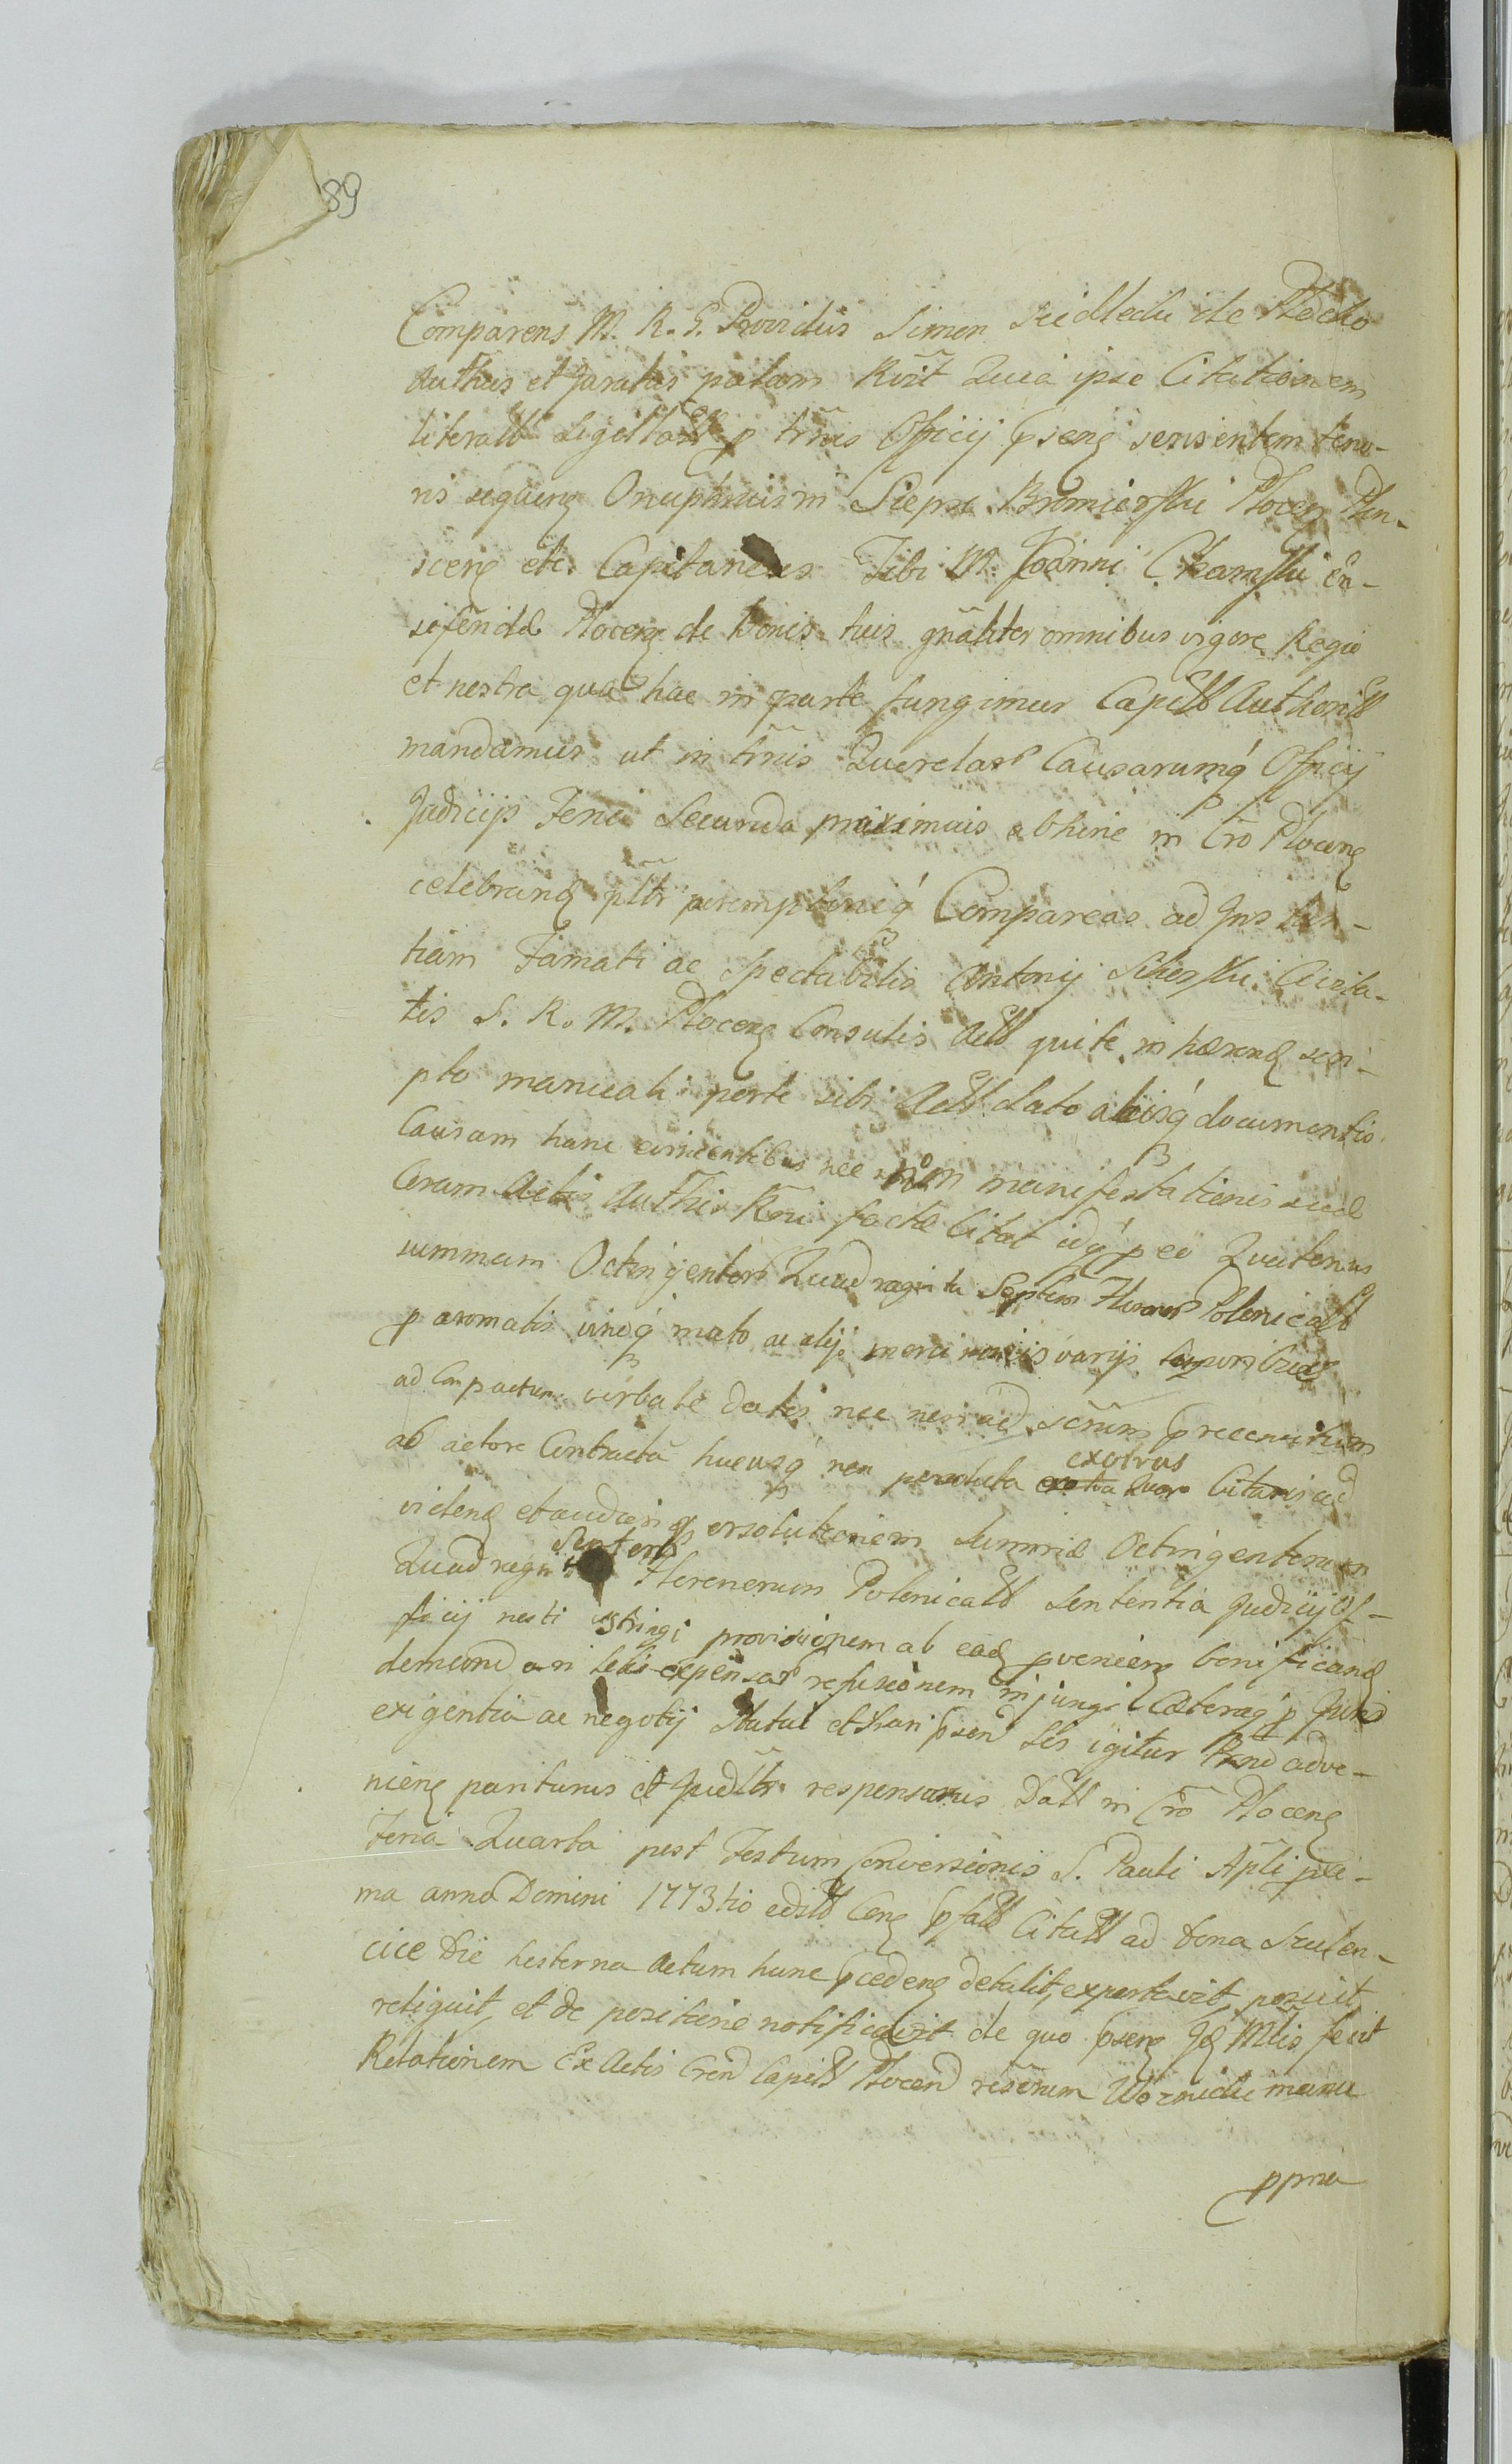 89
Comparens M. R. G. Providus Simon Siedlecki de Plocko
Authus et Juratus palam Kvit̃ Quia ipse Citationem
literall Sigillall p tmis Officij psenq sensientem teno-
ris sequenq Onuphrius in Siepra Bromierski Plocen Plon-
scenq etc. Capitaneus Tibi M. Joanni Chamski En-
sifẽridæ Plocenq de bonis tuis gñaliter omnibus vigore Regia
et nostra qua hac in parte fungimur Capitll Authoritll
mandamus ut in tmis Querelar Causarumq́ Officij
Judicijs Feria Secunda proximais abhinc in Cro Plocenq
celebranq pltr peremptorieq́ Compareas ad Instan-
tiam Famati ac Spectabilis Antonij Silerski Civita-
tis S. R. M. Plocenq Consulis Acll qui te inhærenq scri-
pto manuali per te sibi Actll dato aliisq́ documentis
Causam hanc evincentibus nec non manifestationis suæ
Coram Actis Authis Kñi factæ Citat idq́ p eo Quatenus
summam Octingentor Quadraginta Septem Florenor Polonicall
p aromatis vinoq́ nato ac alijs mercimoniis varijs temporibus
ad Compactum verbale datis nec non ad scrum precenturum
ab actore Contracta hucusq́ non persoluta exolvas Citaris ad
videnq et audienq persolutionem Summæ Octingentorum
Quadraginta Septem Florenorum Polonicall Sententia Judicij Of-
ficij nosti astringi provisionem ab eaq pvenienq bonificanq
demum damni litis expensar refusionem injungi Cæteraq́ p Jurid
exigentia ac negotij Statui et trari psend Sis igitur Pmd adve-
nienq pariturus et Judlr responsurus Datl in Cro Plocenq
Feria Quarta post Festum Conversionis S. Pauli Apli pxi-
ma anno Domini 1773tio edill Cenq psall Citall ad bona Szulen-
cice Die hesterna Actum hunc pcedenq detulit, exportavit posuit,
reliquit, et de positione notificavit de quo psenq Jq Mlis fecit
Relationem Ex Actis Crend Capitll Plocend rescrum Woznicki manu
ppria